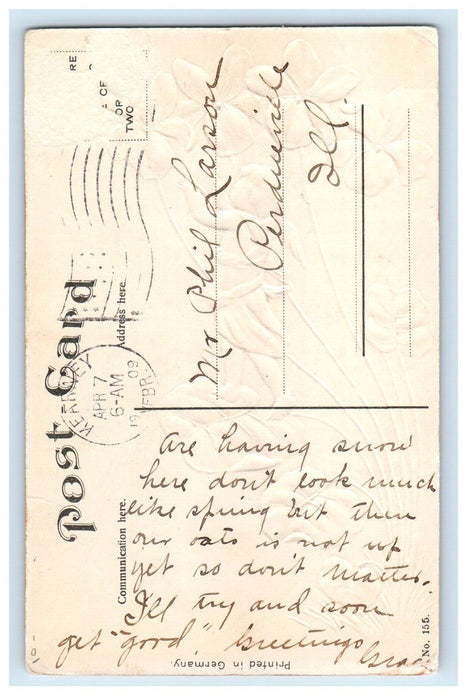 Post Card
Address here.
Communication here.
RE
CE
OR
TWO
KEARNEY
APR 7
6-AM
1909
NEBR.
Mr Phil Larson
Ill.
Are having snow
here don't look much
like spring but then
our oats is not up
yet so don't matter.
I'll try and soon
get "good." Greetings
Printed in Germany.
No. 155.